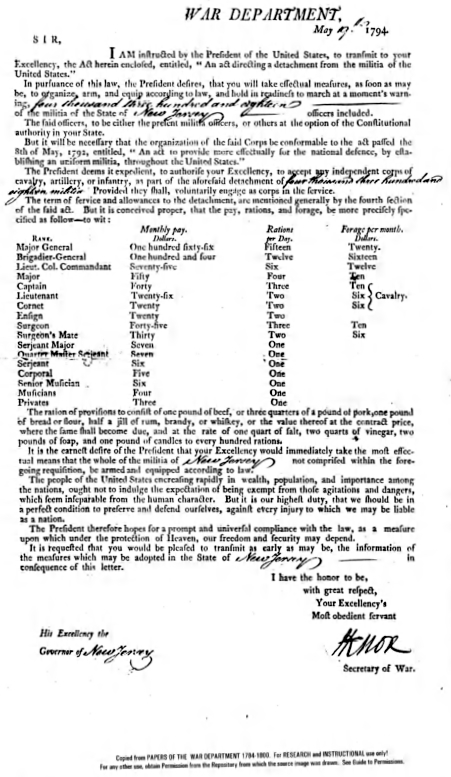 WAR DEPARTMENT,
May 19th 1794
SIR,
I AM instructed by the President of the United States, to transmit to your
Excellency, the Act herein enclosed, entitled, "An act directing a detachment from the militia of the
United States."
In pursuance of this law, the President desires, that you will take effectual measures, as soon as may
be, to organize, arm, and equip according to law, and hold in readiness to march at a moment's warn-
ing, four thousand three hundred and eighteen
of the militia of the State of New Jersey officers included.
The said officers, to be either the present militia officers, or others at the option of the Constitutional
authority in your State.
But it will be necessary that the organization of the said Corps be conformable to the act passed the
8th of May, 1792, entitled, "An act to provide more effectually for the national defence, by esta-
blishing an uniform militia, throughout the United States."
The President deems it expedient, to authorise your Excellency, to accept any independent corps of
cavalry, artillery, or infantry, as part of the aforesaid detachment of four thousand three hundred and
eighteen militia Provided they shall, voluntarily engage as corps in the service.
The term of service and allowances to the detachment, are mentioned generally by the fourth section
of the said act. But it is conceived proper, that the pay, rations, and forage, be more precisely spe-
cified as follow—to wit:
Monthly pay. Rations Forage per month.
RANK. Dollars. per Day. Dollars.
Major General One hundred sixty-six Fifteen Twenty.
Brigadier-General One hundred and four Twelve Sixteen
Lieut. Col. Commandant Seventy-five Six Twelve
Major Fifty Four Ten
Captain Forty Three Ten
Lieutenant Twenty-six Two Six Cavalry.
Cornet Twenty Two Six
Ensign Twenty Two
Surgeon Forty-five Three Ten
Surgeon's Mate Thirty Two Six
Serjeant Major Seven One
Quarter Master Serjeant Seven One
Serjeant Six One
Corporal Five One
Senior Musician Six One
Musicians Four One
Privates Three One
The ration of provisions to consist of one pound of beef, or three quarters of a pound of pork, one pound
of bread or flour, half a jill of rum, brandy, or whiskey, or the value thereof at the contract price,
where the same shall become due, and at the rate of one quart of salt, two quarts of vinegar, two
pounds of soap, and one pound of candles to every hundred rations.
It is the earnest desire of the President that your Excellency would immediately take the most effec-
tual means that the whole of the militia of New Jersey not comprised within the fore-
going requisition, be armed and equipped according to law.
The people of the United States encreasing rapidly in wealth, population, and importance among
the nations, ought not to indulge the expectation of being exempt from those agitations and dangers,
which seem inseparable from the human character. But it is our highest duty, that we should be in
a perfect condition to preserve and defend ourselves, against every injury to which we may be liable
as a nation.
The President therefore hopes for a prompt and universal compliance with the law, as a measure
upon which under the protection of Heaven, our freedom and security may depend.
It is requested that you would be pleased to transmit as early as may be, the information of
the measures which may be adopted in the State of New Jersey in
consequence of this letter.
I have the honor to be,
with great respect,
Your Excellency's
Most obedient servant
His Excellency the
Governor of New Jersey
HKnox
Secretary of War.
Copied from PAPERS OF THE WAR DEPARTMENT 1784-1800. For RESEARCH and INSTRUCTIONAL use only!
For any other use, obtain Permission from the Repository from which the source image was drawn. See Guide to Permissions.